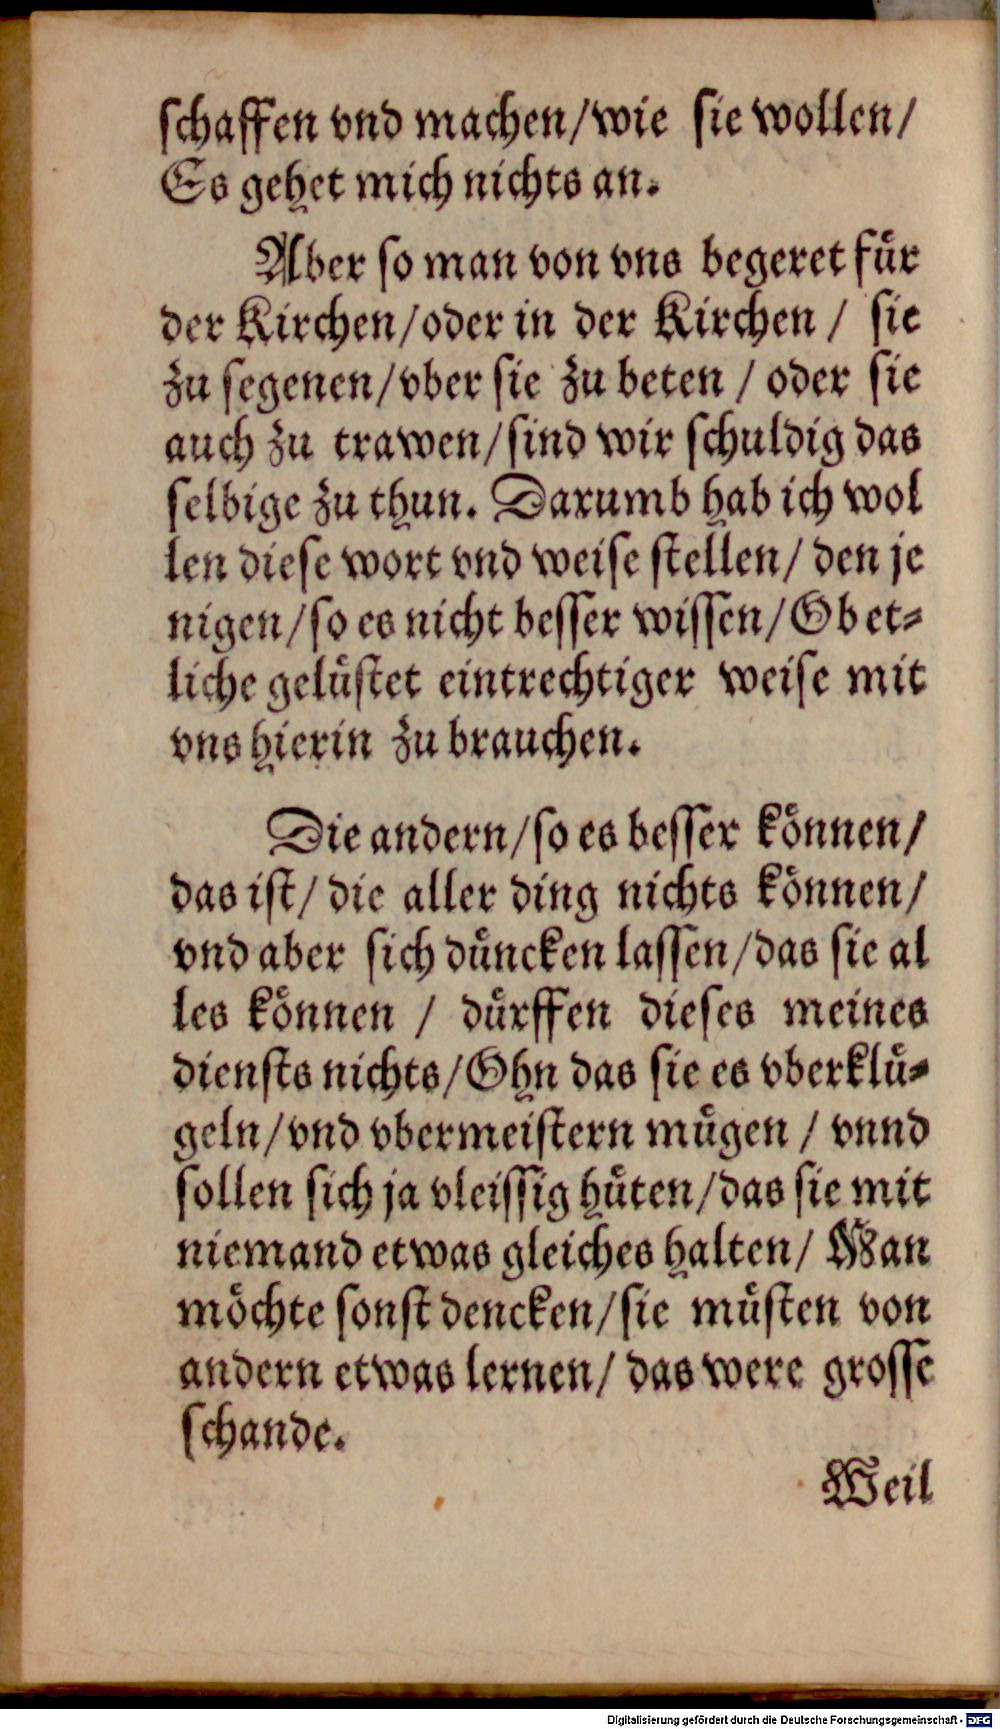 schaffen vnd machen/wie sie wollen/
Es gehet mich nichts an.
Aber so man von vns begeret für
der Kirchen/oder in der Kirchen / sie
zu segenen/vber sie zu beten / oder sie
auch zu trawen/sind wir schuldig das
selbige zu thun. Darumb hab ich wol
len diese wort vnd weise stellen/ den je
nigen/so es nicht besser wissen/Ob et⸗
liche gelüstet eintrechtiger weise mit
vns hierin zu brauchen.
Die andern/so es besser können/
das ist/ die aller ding nichts können/
vnd aber sich düncken lassen/das sie al
les können / dürffen dieses meines
diensts nichts/Ohn das sie es vberklü⸗
geln/vnd vbermeistern mügen / vnnd
sollen sich ja vleissig hüten/das sie mit
niemand etwas gleiches halten/ Man
möchte sonst dencken/sie müsten von
andern etwas lernen/ das were grosse
schande.
Weil
Digitalisierung gefördert durch die Deutsche Forschungsgemeinschaft - DFG